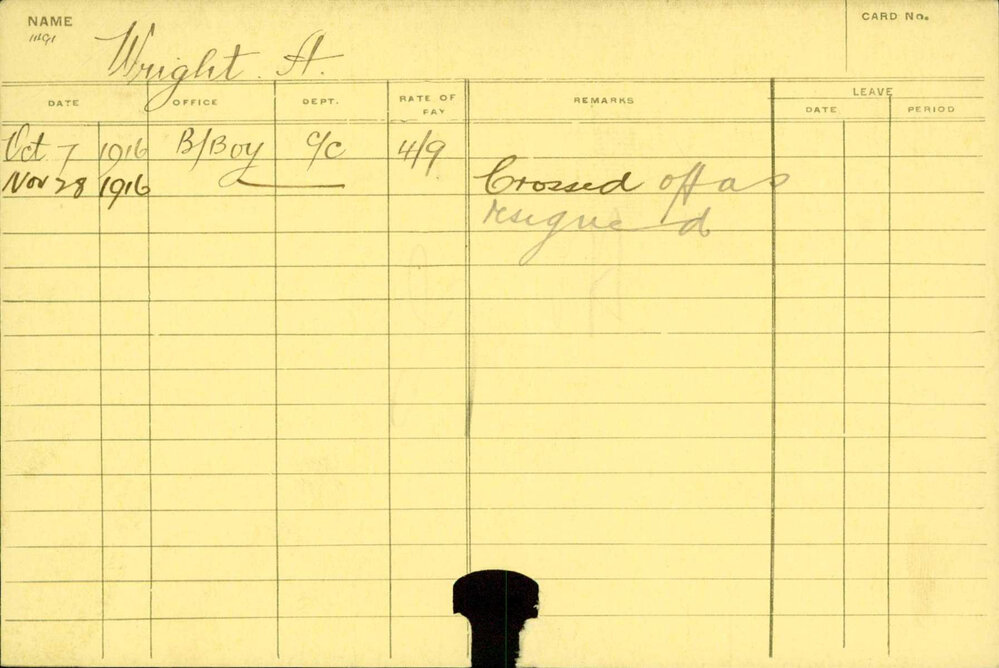 NAME
CARD No.
Wright. A.
DATE OFFICE DEPT. RATE OF PAY REMARKS LEAVE
DATE PERIOD
Oct 7 1916 B/Boy C/C 4/9
Nov 28 1916 Crossed off as
resigned